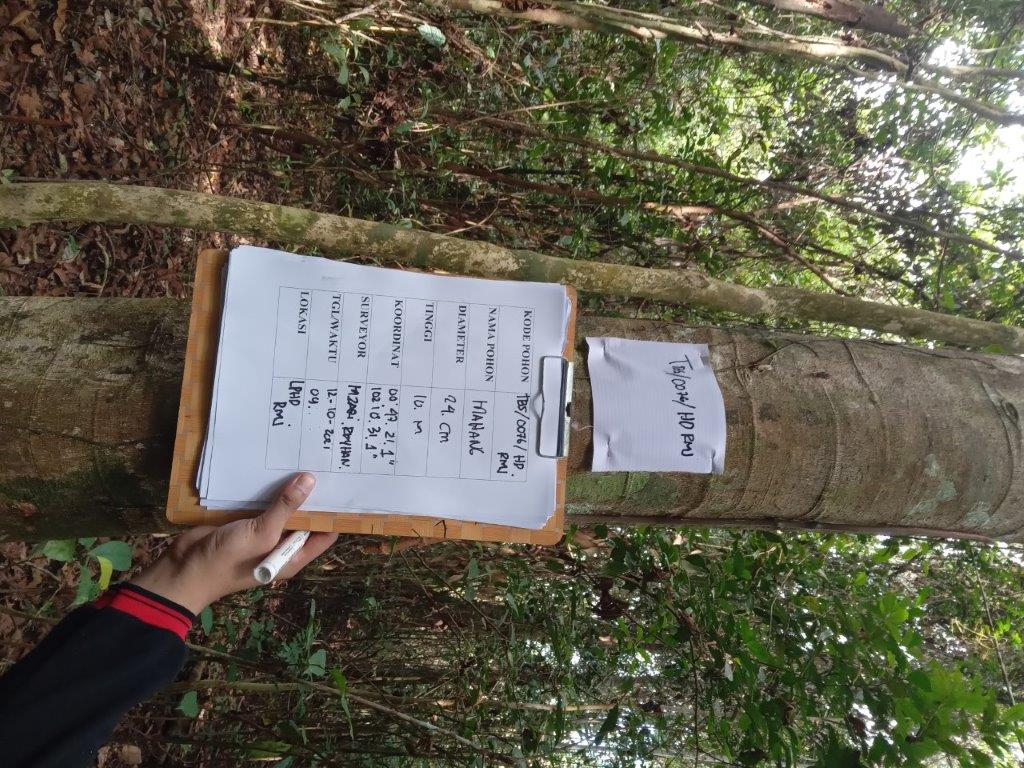 TBS/0076/HD RMJ
KODE POHON TBS/0076/HD.
RMJ
NAMA POHON MAHANG
DIAMETER 24. CM
TINGGI 10. M
KOORDINAT 00°.47. 21. 1"
102°10. 31. 1"
SURVEYOR ROYHAN.
TGL/WAKTU 12-10-2021
09.
LOKASI LPHD
RMJ